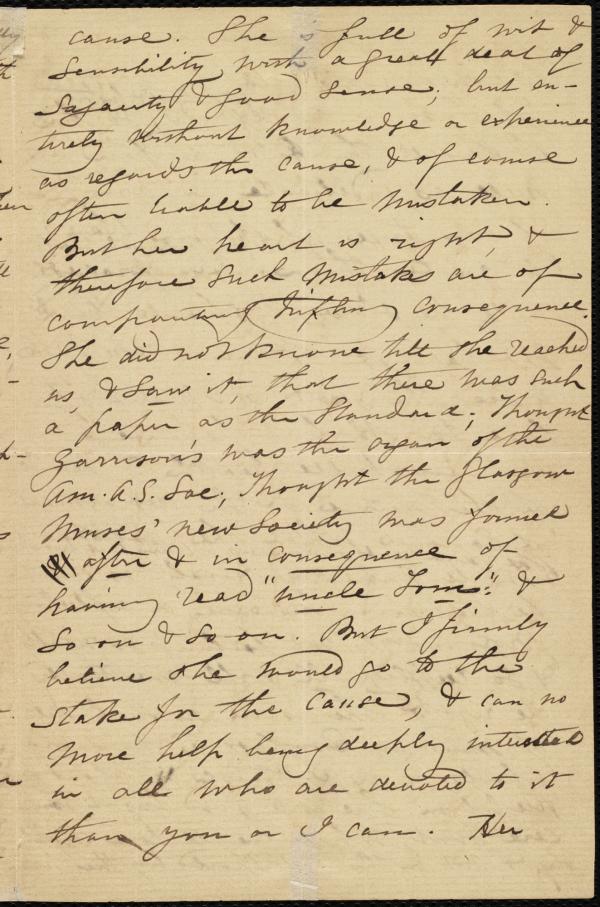 cause. She is full of wit &
sensibility with a great deal of
sagacity & good sense; but en-
tirely without knowledge or experience
as regards the cause, & of course
often liable to be mistaken.
But her heart is right, &
therefore such mistakes are of
comparatively trifling consequence.
She did not know till she reached
us, & saw it, that there was such
a paper as the Standard; Thought
Garrison's was the organ of the
Am. A. S. Soc; Thought the Glasgow
new Society was formed
after & in consequence of
having read "Uncle Tom": &
so on & so on. But I firmly
believe she would go to the
stake for the cause, & can no
more help being deeply interested
in all who are devoted to it
than you or I can. Her